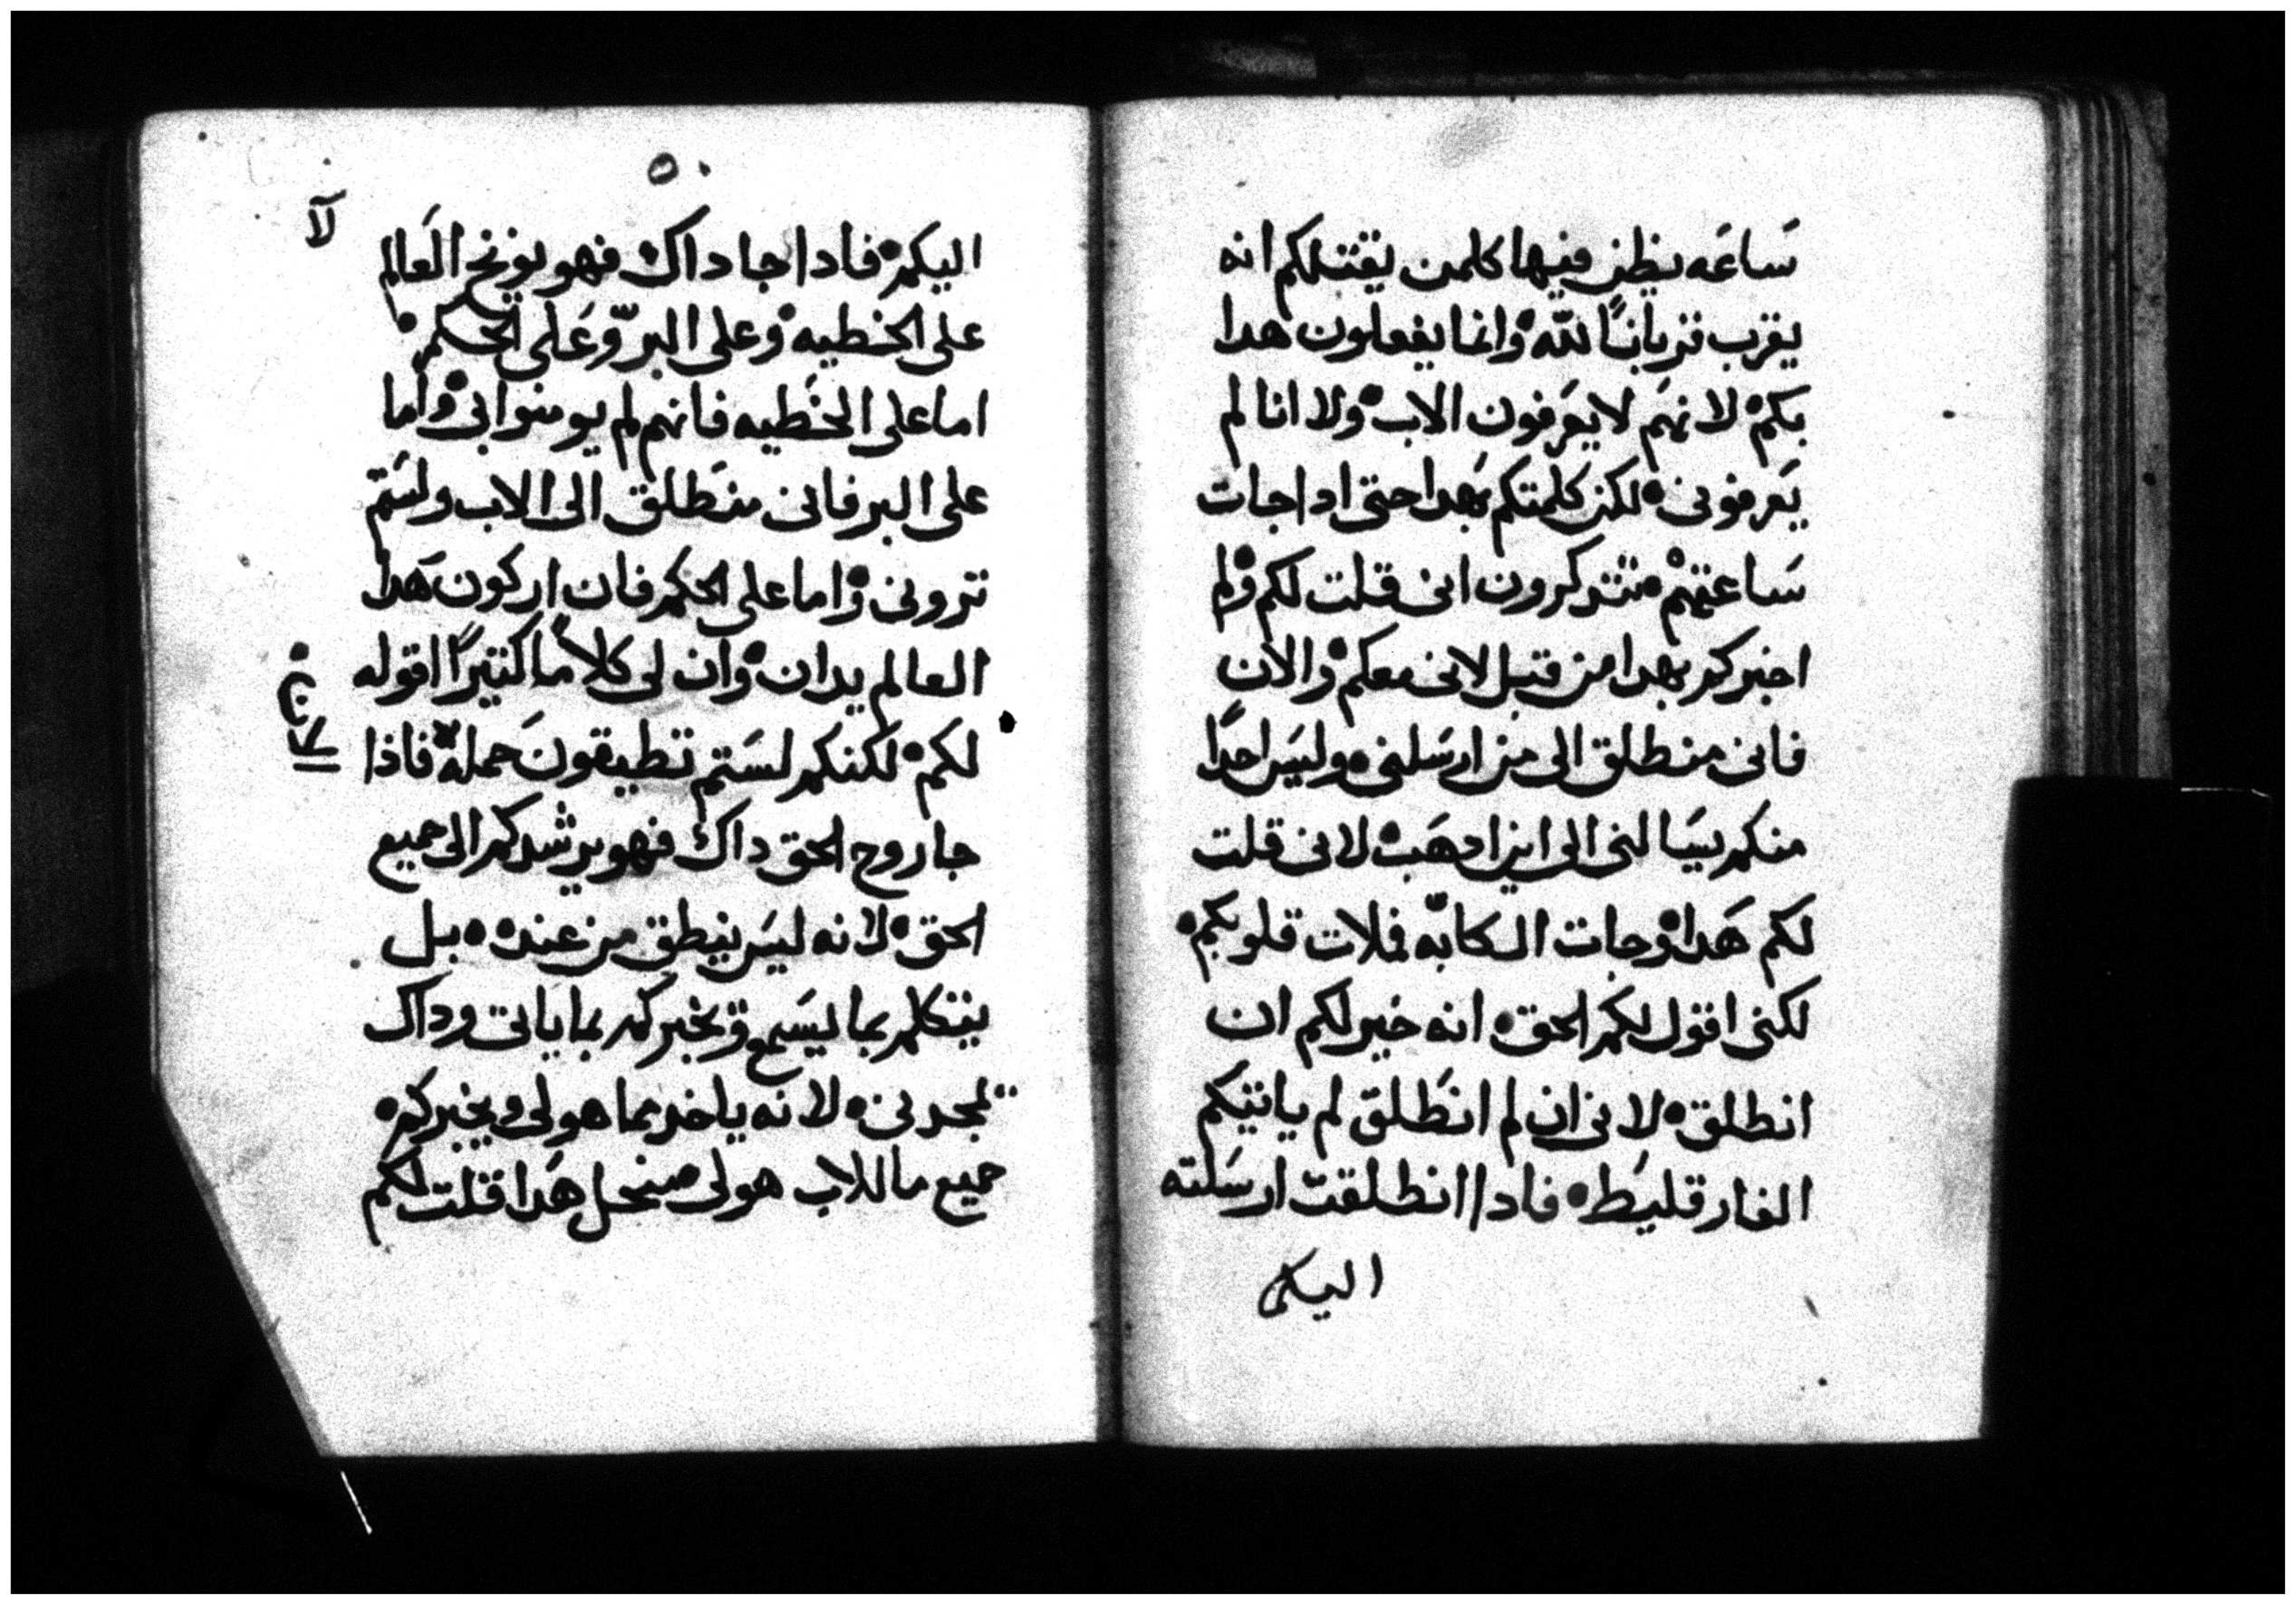 ساعه يظن فيها كلمن يقتلكم انه
يقرب قربانا لله وانما يفعلون هدا
بكم لانهم لا يعرفون الاب ولا انا لم
يعرفونى لكن كلمتكم بهدا حتى ادا جات
ساعتهم تتدكرون انى قلت لكم ولم
اخبركم بهدا من قبل لانى معكم والان
فانى منطلق الى من ارسلنى وليس احدا
منكم يسالنى الى اين ادهب لانى قلت
لكم هدا وجات الكابه فملات قلوبكم
لكنى اقول لكم الحق انه خير لكم ان
انطلق لانى ان لم انطلق لم ياتيكم
الفارقليط فادا انطلقت ارسلته
اليكم
٥٠
لآ
اليكم فادا جا داك فهو يوبخ العالم
على الخطيه وعلى البر وعلى الحكم
اما على الخطيه فانهم لم يومنوا بى واما
على البر فانى منطلق الى الاب ولستم
ترونى واما على الحكم فان اركون هدا
العالم يدان وان لى كلاما كثيرا اقوله
لكم لكنكم لستم تطيقون حمله فاذا
جا روح الحق داك فهو يرشدكم الى جميع
الحق لانه ليس ينطق من عنده بل
يتكلم بما يسمع ويخبركم بما ياتى وداك
يمجدنى لانه ياخد مما هو لى ويخبركم
جميع ما للاب هو لى من اجل هدا قلت لكم